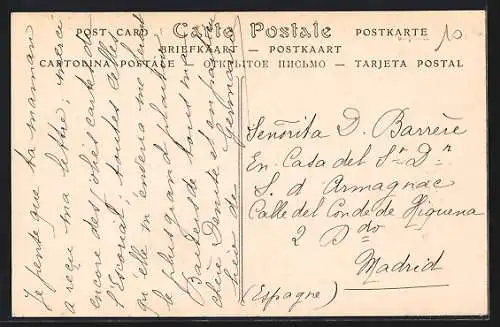 POST CARD Carte Postale POSTKARTE
BRIEFKAART — POSTKAART
CARTOLINA POSTALE — ОТКРЫТОЕ ПИСЬМО — TARJETA POSTAL
10
Je pense que ta maman
a reçu ma lettre; merci
encore des jolies cartes de
l'Escorial; toutes celles
qu'elle m'enverra me feront
le plus grand plaisir.
Baisers de tous ma
chère Denise et en particu
lier de Germaine
Señorita D. Barrère
En Casa del Sr Dr
S. d Armagnac
Calle del Conde de Xiquena
2 Pdo
Madrid
(Espagne)